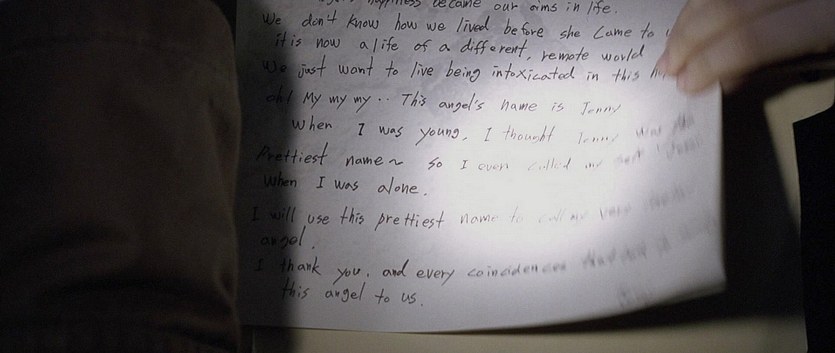 happiness became our aims in life.
We don't know how we lived before she came to
it is now a life of a different, remote world
We just want to live being intoxicated in this
oh! My my my.. This angel's name is Jenny
When I was young, I thought Jenny was the
Prettiest name~ so I even called my self
When I was alone.
I will use this prettiest name to call
angel.
I thank you, and every coincidences
this angel to us.